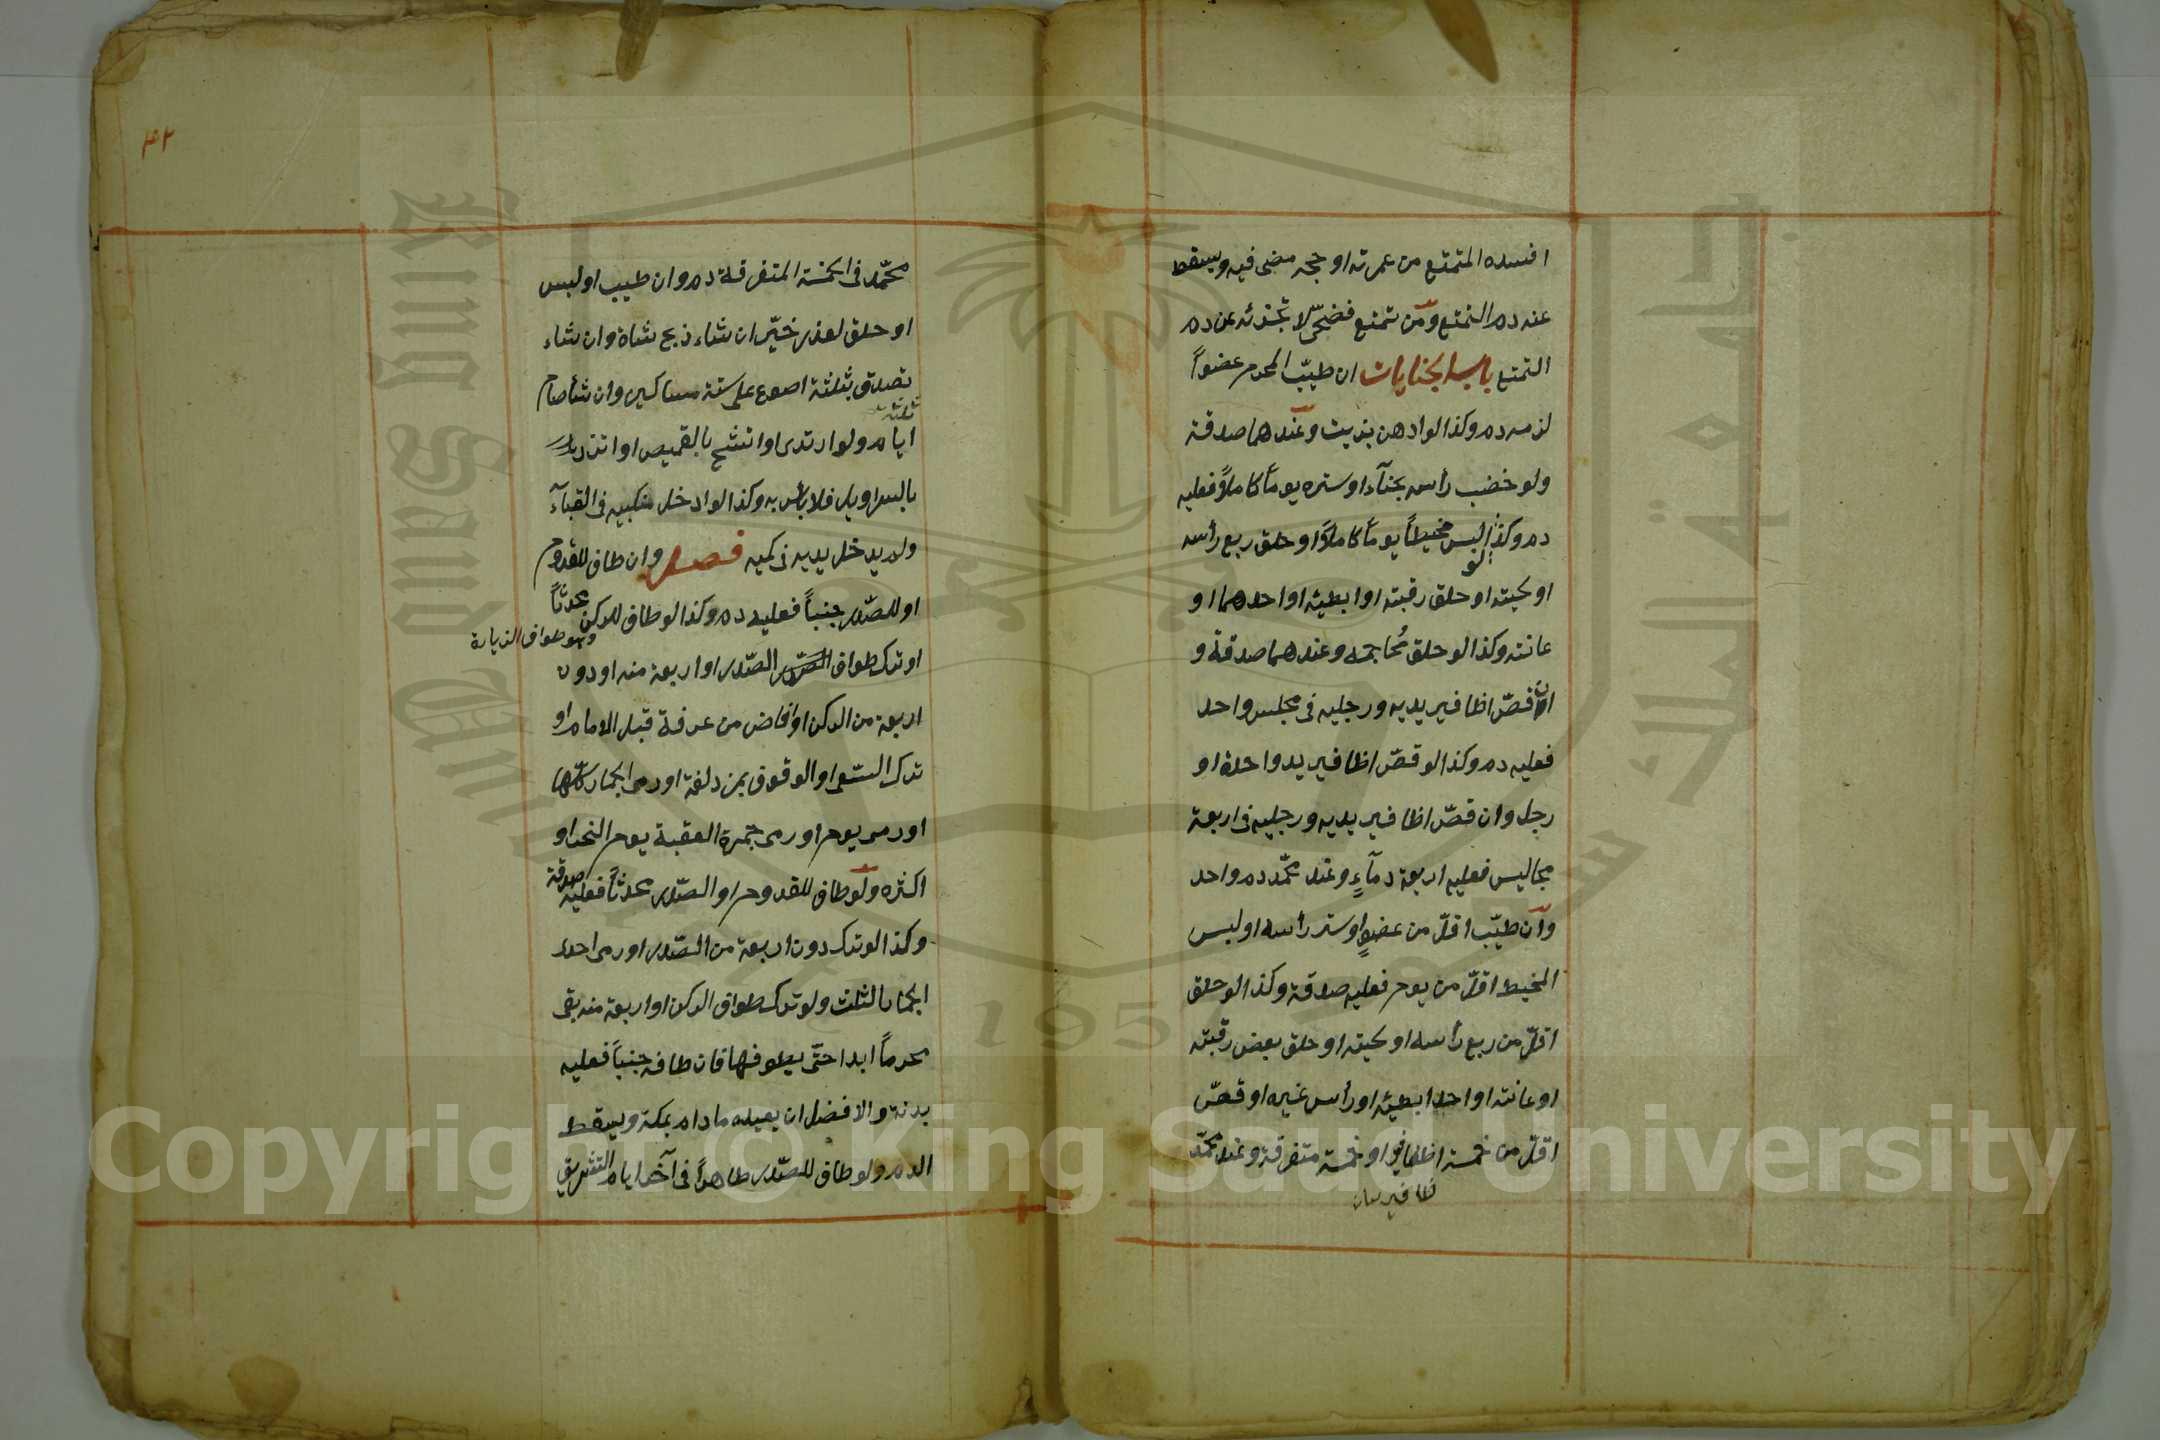 افسده المتمتع من عمرته او حجه مضى فيه ويسقط
عنه دم التمتع ومن تمتع فضحى لا تجزئه عن دم
التمتع باب الجنايات ان طيّب المحرم عضواً
لزمه دم وكذا لو ادهن بزيت وعندهما صدقة
ولو خضب رأسه بحناء او ستره يوماً كاملاً فعليه
دم وكذا لو لبس مخيطاً يوماً كاملاً او حلق ربع رأسه
او لحيته او حلق رقبته او ابطيه او احدهما او
عانته وكذا لو حلق محاجمه وعندهما صدقة و
ان قصّ اظافير يديه ورجليه فى مجلس واحد
فعليه دم وكذا لو قصّ اظافير يد واحدة او
رجل وان قصّ اظافير يديه ورجليه فى اربعة
مجاليس فعليه اربعة دمآءٍ وعند محمّد دم واحد
وان طيّب اقلّ من عضوٍ او ستر رأسه او لبس
المخيط اقلّ من يوم فعليه صدقة وكذا لو حلق
اقلّ من ربع رأسه او لحيته او حلق بعض رقبته
او عانته او احد ابطيه او رأس غيره او قصّ
اقلّ من خمسة اظافير او خمسة متفرقة وعند محمّد
ظافير بيان
٤٢
محمّد فى الخمسة المتفرقة دم وان طيب او لبس
او حلق لعذر خيّر ان شاء ذبح شاة وان شاء
تصدق بثلثة اصوع على ستة مساكين وان شأ صام
ثلثة
ايام ولو ارتدى او اتشح بالقميص او اتزر
بالسراويل فلا بأس به وكذا لو ادخل منكبيه فى القبآء
ولم يدخل يديه فى كميه فصل وان طاف للقدوم
او للصّدر جنباً فعليه دم وكذا لو طاف للركن محدثاً
وهو طواف الزيارة
او ترك طواف الصّدر او اربعة منه او دون
اربعة من الركن او افاض من عرفة قبل الامام او
ترك السّعى او الوقوف بمزدلفة او رمى الجمار كلّها
او رمى يوم او رمى جمرة العقبة يوم النحر او
اكثره ولو طاف للقدوم او الصّدر محدثاً فعليه صدقة
وكذا لو ترك دون اربعة من الصّدر او رمى احد
الجمار الثلث ولو ترك طواف الركن او اربعة منه بقى
محرماً ابدا حتّى يطوفها فان طافه جنباً فعليه
بدنة والافضل ان يعيده ما دام بمكة ويسقط
الدم ولو طاف للصّدر طاهراً فى آخر ايام التشريق
Copyright © King Saud University
1957